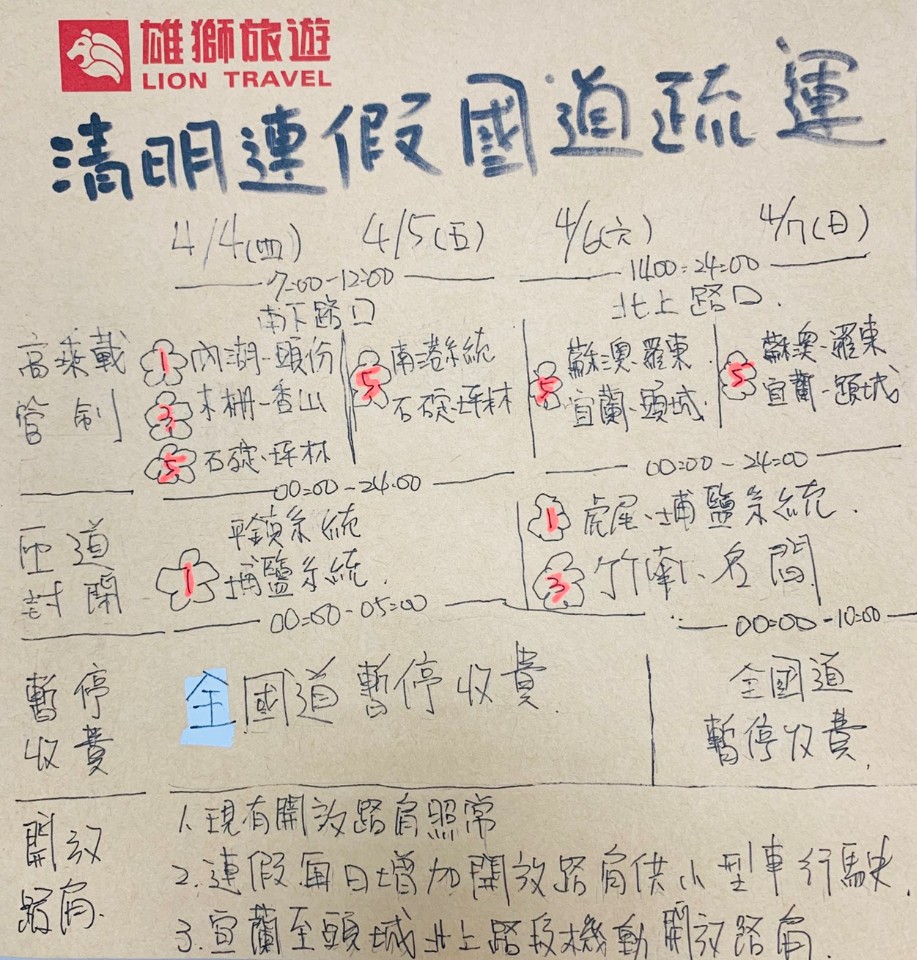 雄獅旅遊
LION TRAVEL
清明連假國道疏運
4/4(四) 4/5(五) 4/6(六) 4/7(日)
7:00-12:00 1400=24:00
南下路口 北上路口.
高乘載
管制
1 內湖-頭份
3 木柵-香山
5 石碇-坪林
5 南港系統
石碇-坪林
5 蘇澳.羅東.
宜蘭.頭城.
5 蘇澳.羅東
宜蘭.頭城
00=00-24:00 00=00-24=00
匝道
封閉
平鎮系統
1 埔鹽系統.
1 虎尾、埔鹽系統.
3 竹南、名間.
00=00-05=00 00=00-10=00
暫停
收費
全國道暫停收費.
全國道
暫停收費.
開放
路肩.
1.現有開放路肩照常
2.連假每日增加開放路肩供小型車行駛.
3.宜蘭至頭城北上路段機動開放路肩